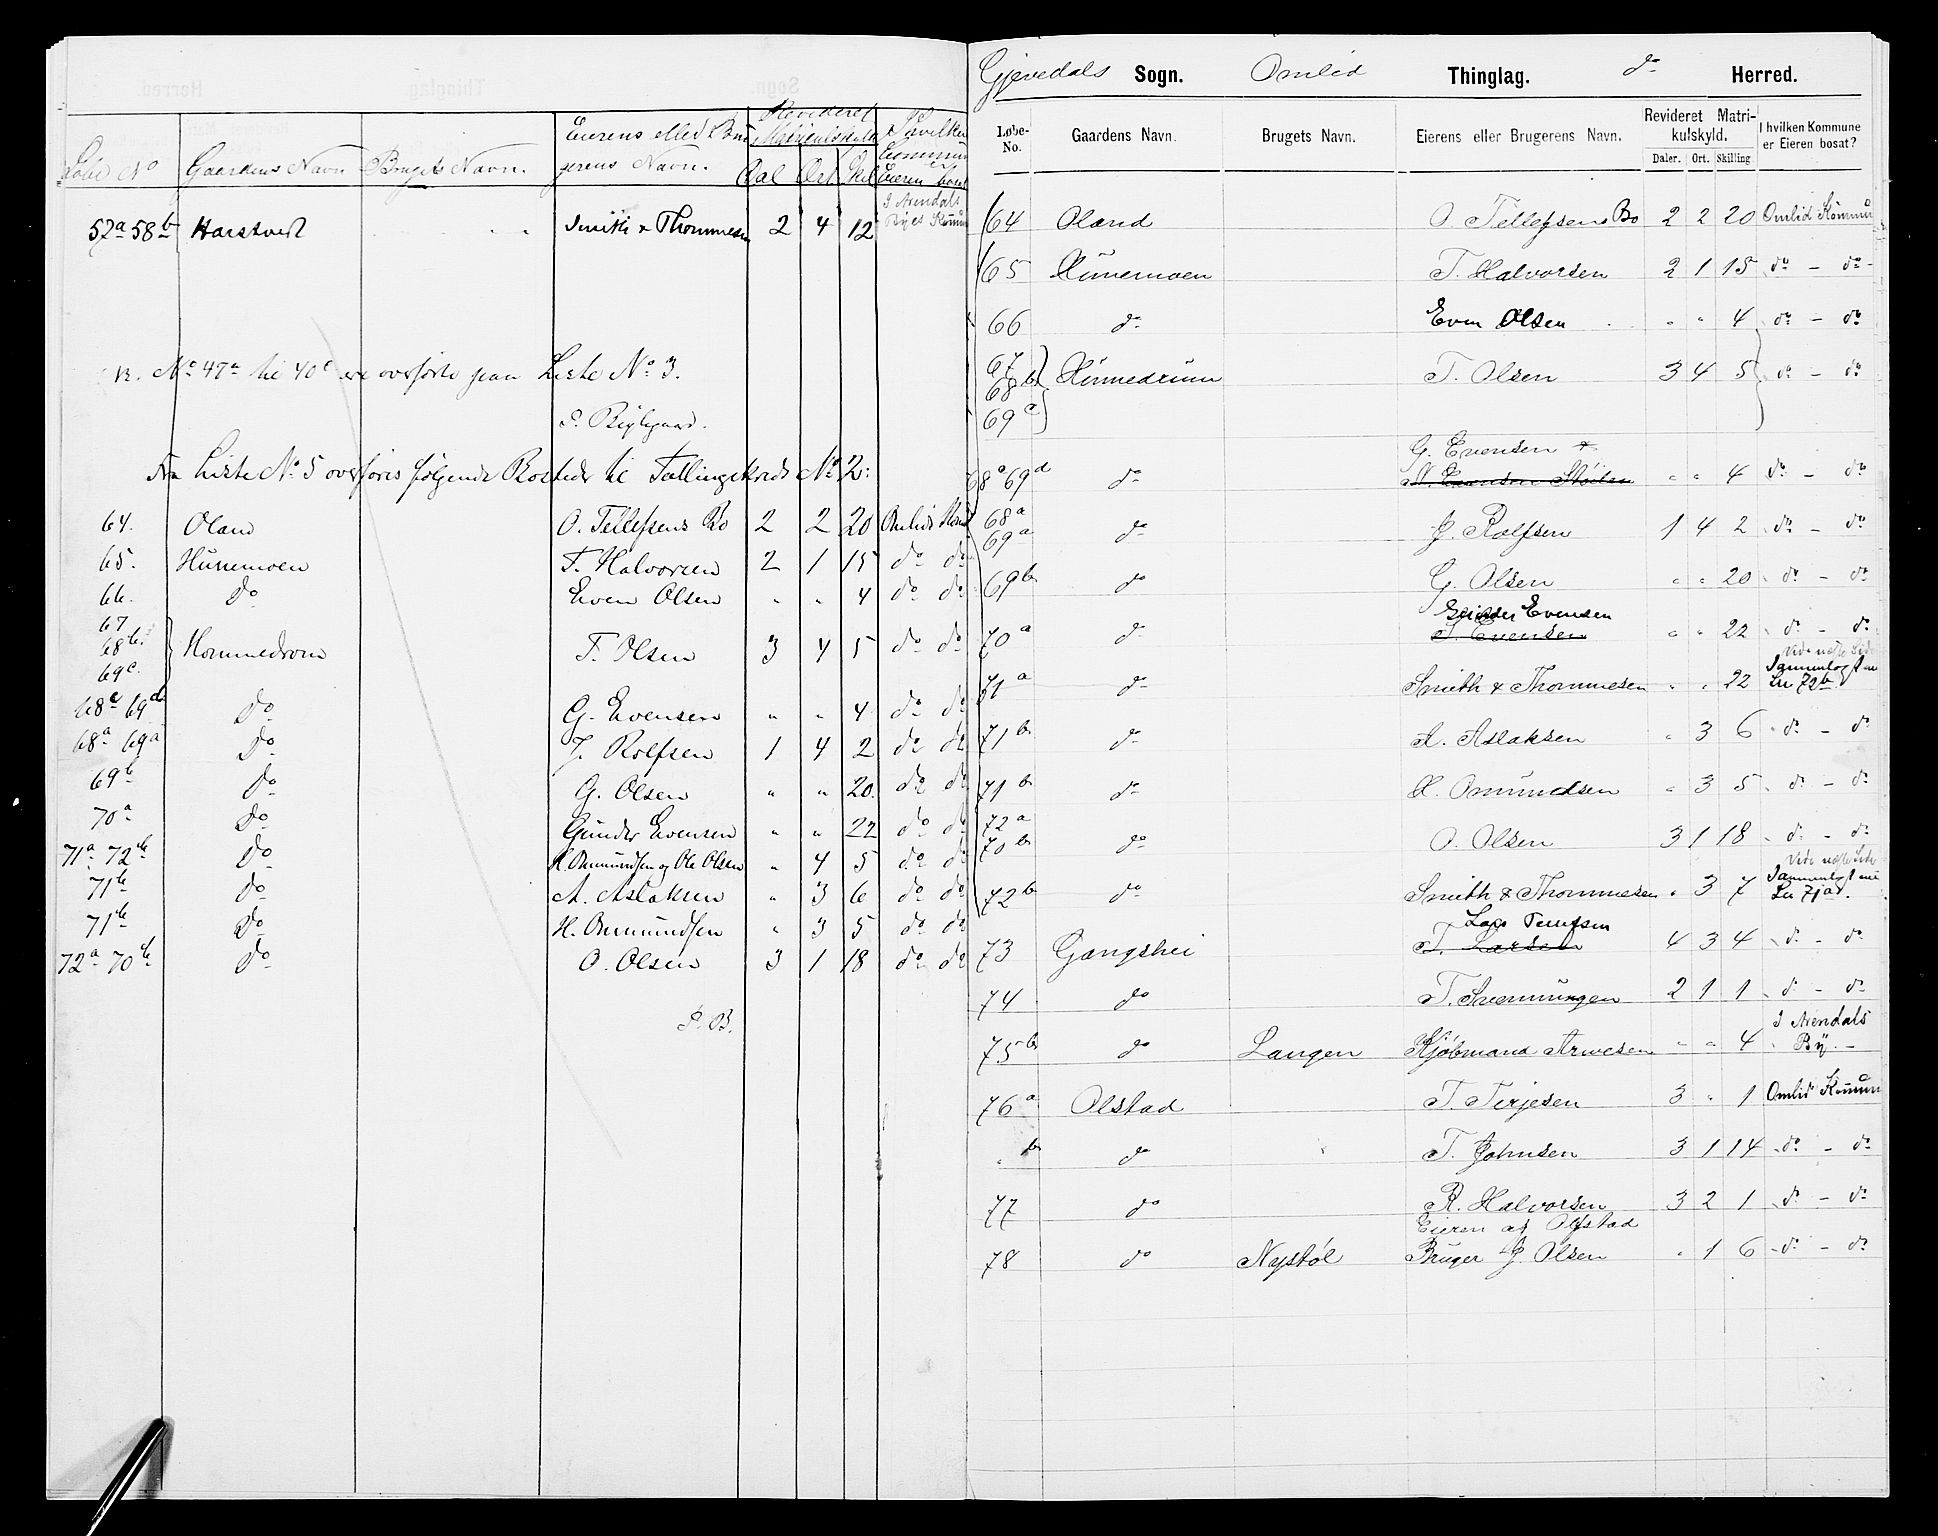 Løbe No Gaardens Navn Brugets Navn. Eierens eller Bru- gerens Navn. Revideret Matrikulskyld Dal Ort Skil I hvilken Commune er Eieren bosat
57a 58b Harstveit Smith & Thommesen 2 4 12 I Arendals Byes Kommun
No 47a til 40c ere overførte paa Liste No 3.
S. Bieltgaard.
Fra Liste No 5 overføres følgende Bosteder til Tællingskreds No 2:
64. Oland O. Tellefsens Bo 2 2 20 Omlids Kom
65. Hunemoen T. Halvorsen 2 1 15 do do
66. do Even Olsen " " 4 do do
67
68b. Hommedrom T. Olsen 3 4 5 do do
69c.
68c 69d do G. Evensen " " 4 do do
68a 69a do J. Rolfsen 1 4 2 do do
69b do G. Olsen " " 20. do do
70a do Gunder Evensen " " 22 do do
71a 72b do H. Omundsen og Ole Olsen " 4 5 do do
71b do A. Aslaksen " 3 6 do do
71b do H. Omundsen " 3 5 do do
72a 70b do O. Olsen 3 1 18 do do
S. B.
Gjevedals Sogn. Omlid Thinglag. do Herred.
Løbe-No. Gaardens Navn. Brugets Navn. Eierens eller Brugerens Navn. Revideret Matri-kulskyld. Daler. Ort. Skilling I hvilken Kommune er Eieren bosat?
64 Oland O. Tellefsens Bo 2 2 20 Omlid Kommun
65 Hunemoen T. Halvorsen 2 1 15 do - do
66 do Even Olsen " " 4 do - do
67
68b Hommedrum T. Olsen 3 4 5 do - do
69c
G. Evensen
68a 69d do " " 4 do - do
68a
69a do J. Rolfsen 1 4 2 do - do
69b do G. Olsen " " 20 do - do
Gunder Evensen
70a do T. Evensen " " 22 do - do
Vide næste Side
71a do Smith & Thommesen " " 22 Sammenlagt m Ln 72b
71b do A. Aslaksen " 3 6 do - do
71b do H. Omundsen " 3 5 do - do
72a
70b do O. Olsen 3 1 18 do - do
Vide næste Side
72b do Smith & Thommesen " 3 7 Sammenlagt me Ln 71a
Lars Tellefsen
73 Gangshei T. Larsen 4 3 4 do - do
74 do T. Svennungen 2 1 1 do - do
75b do Langen Kjøbmand Arnesen " " 4 I Arendals By. -
76a Olstad T. Terjesen 3 " 1 Omlid Kommun
" b do T. Johnsen 3 1 14 do - do
77 do R. Halvorsen 3 2 1 do - do
Eieren af Olstad
78 do Nystøl Bruger J. Olsen " 1 6 do - do